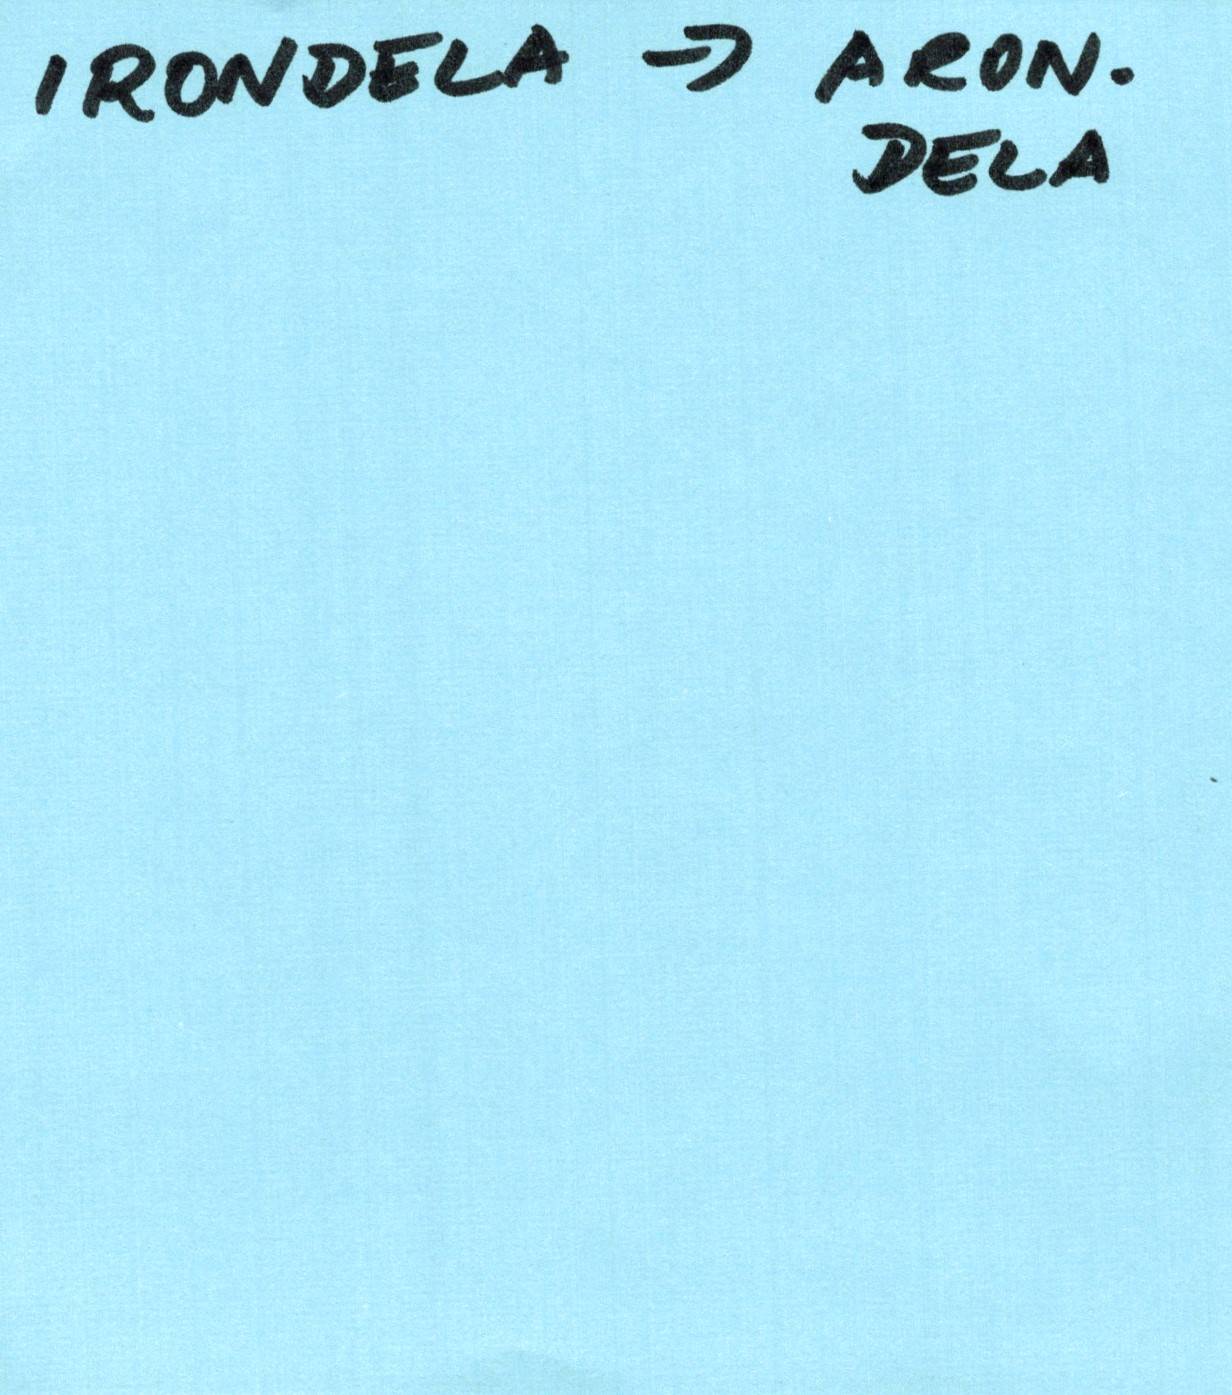 IRONDELA → ARON.
DELA